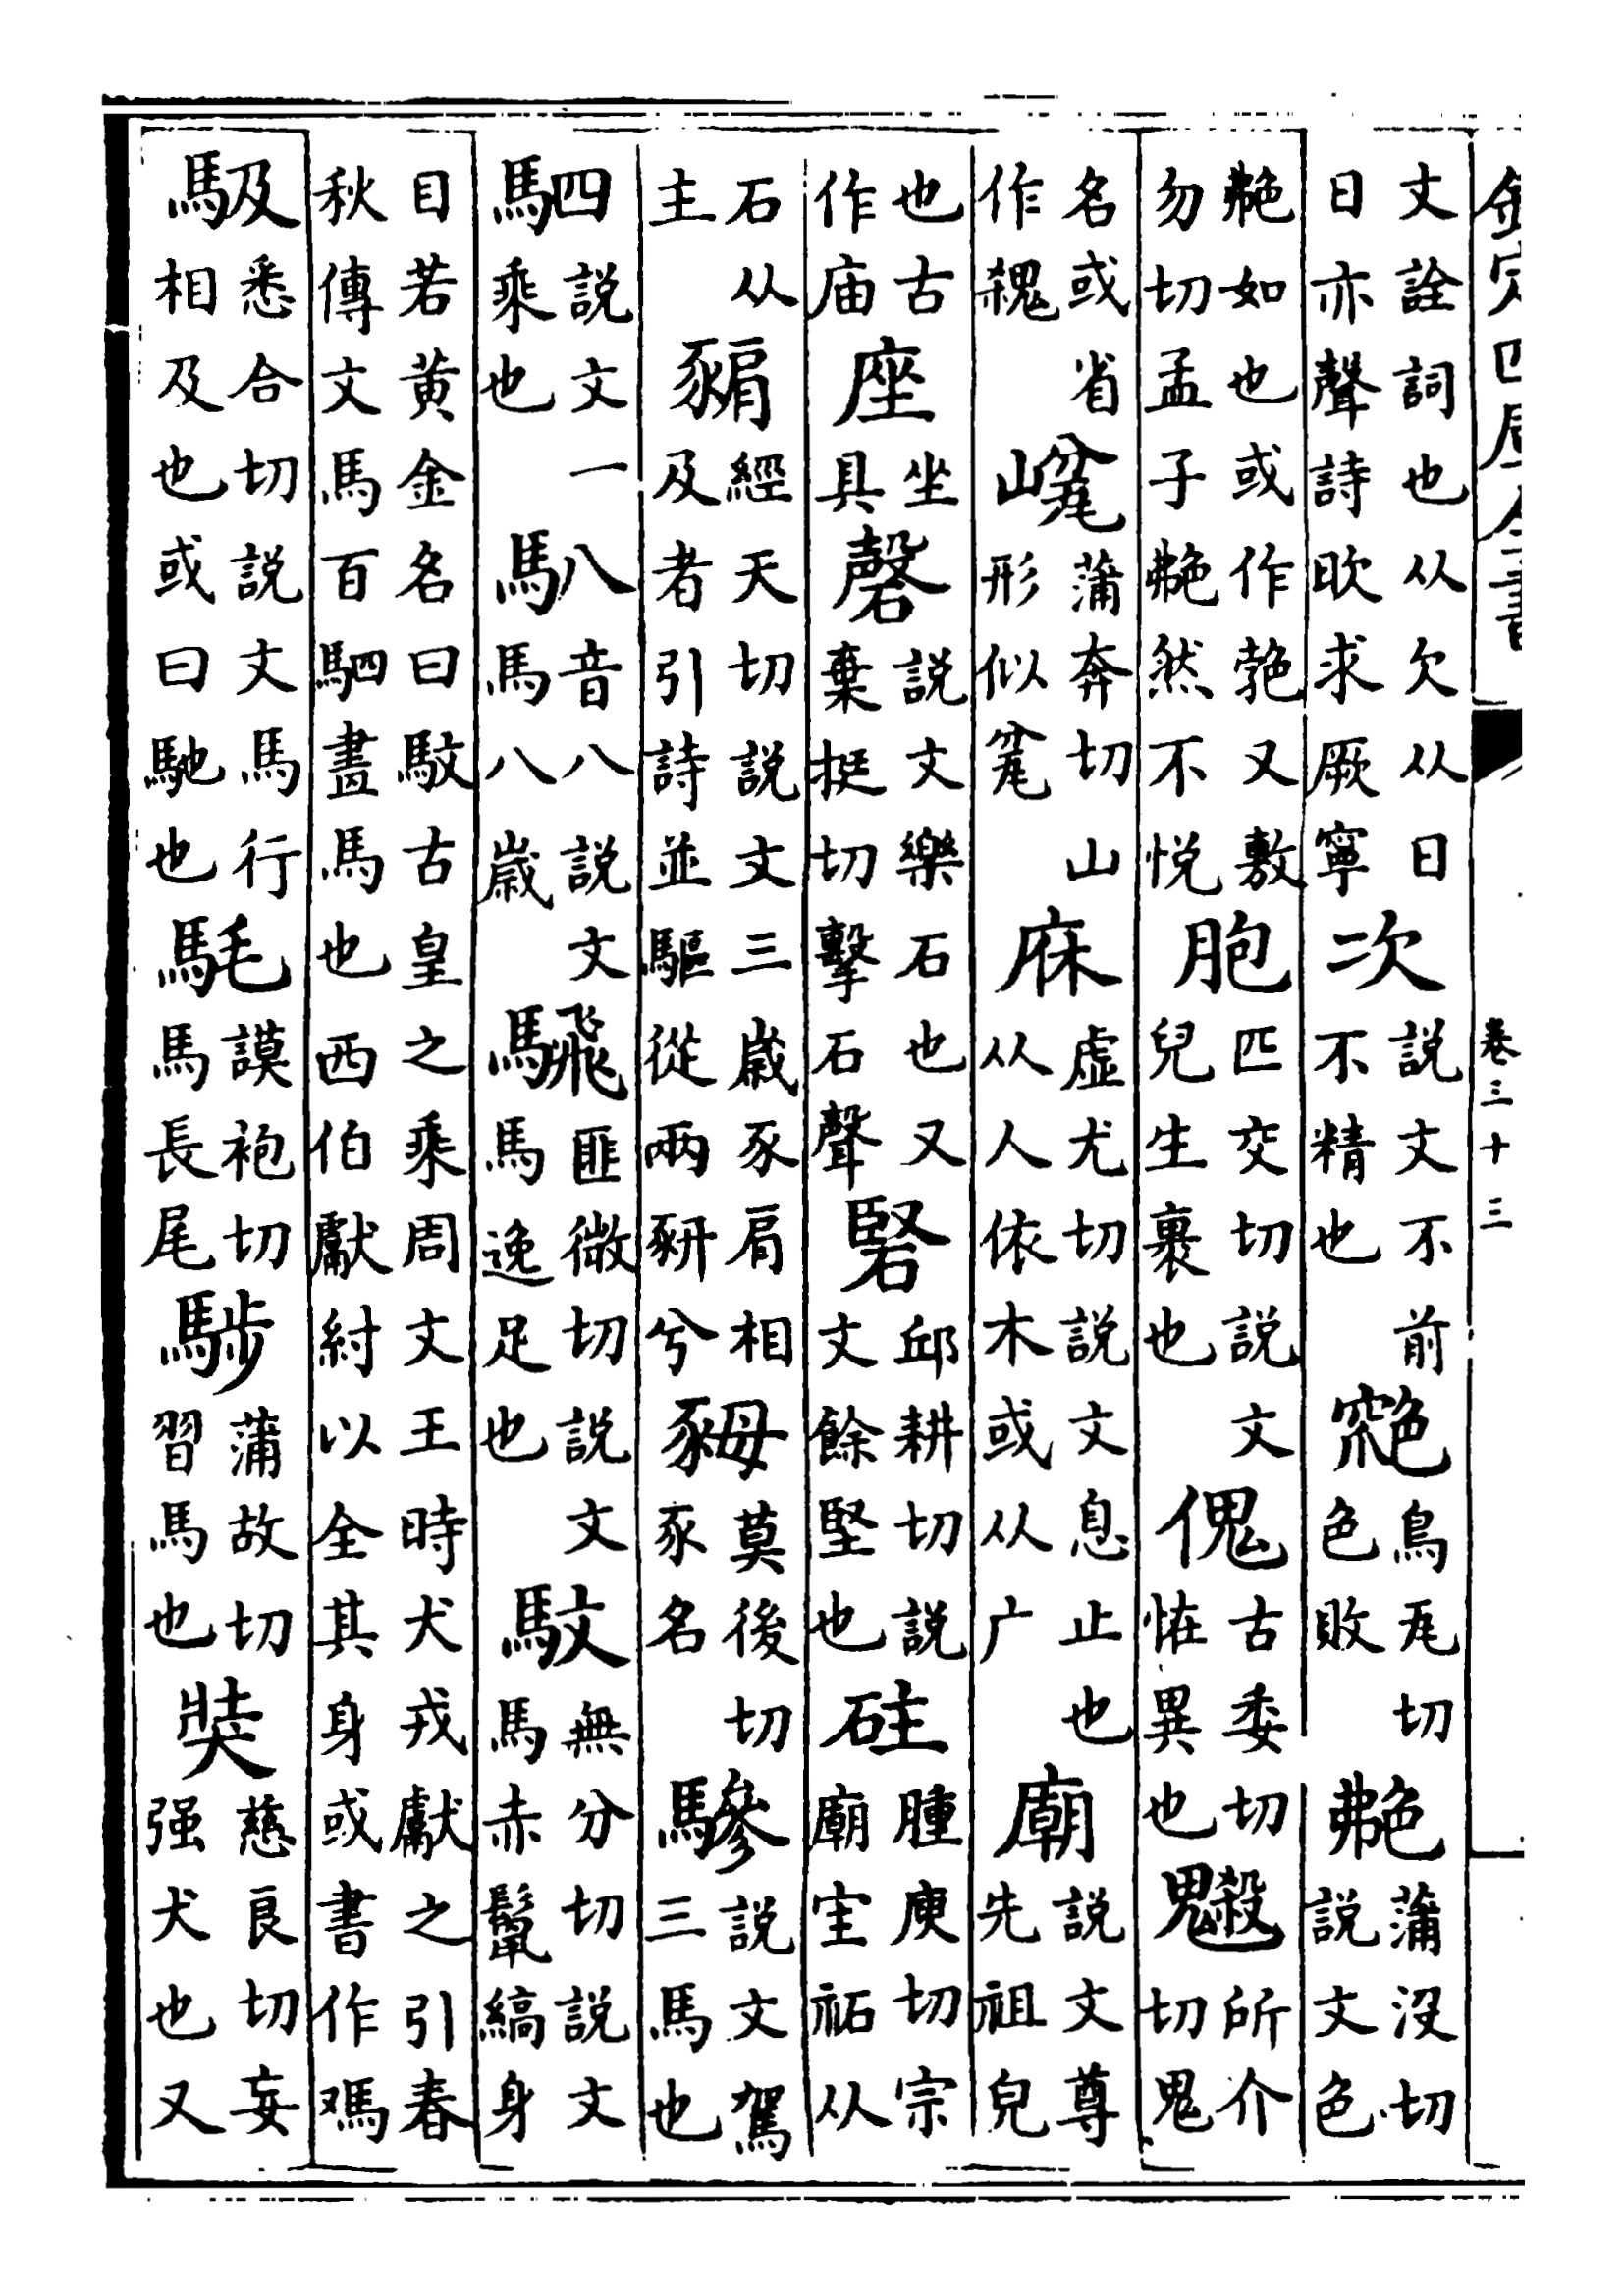 欽定四庫全書
卷三十三
文詮詞也从欠从曰
曰亦聲詩欥求厥寧
次
說文不前
不精也
鳥瓦切
色敗
艴
蒲沒切
說文色
艴如也或作又敷
勿切孟子艴然不悅
胞
匹交切說文
兒生裹也
傀
古委切
恠異也
所介
切鬼
名或省
作
蒲奔切山
形似
庥
虛尤切說文息止也
从人依木或从广
廟
說文尊
先祖皃
也古
作庙
座
坐
具
磬
說文樂石也又
棄挺切擊石聲
硻
邱耕切說
文餘堅也
砫
腫庾切宗
廟宔祏从
石从
主
豣
經天切說文三歲豕肩相
及者引詩並驅從兩豜兮
莫後切
豕名
驂
說文駕
三馬也
駟
說文一
乘也
音八說文
馬八歲
騛
匪微切說文
馬逸足也
馼
無分切說文
馬赤鬣縞身
目若黃金名曰馼古皇之乘周文王時犬戎獻之引春
秋傳文馬百駟畫馬也西伯獻紂以全其身或書作
馺
悉合切說文馬行
相及也或曰馳也
謨袍切
馬長尾
蒲故切
習馬也
奘
慈良切妄
强犬也又